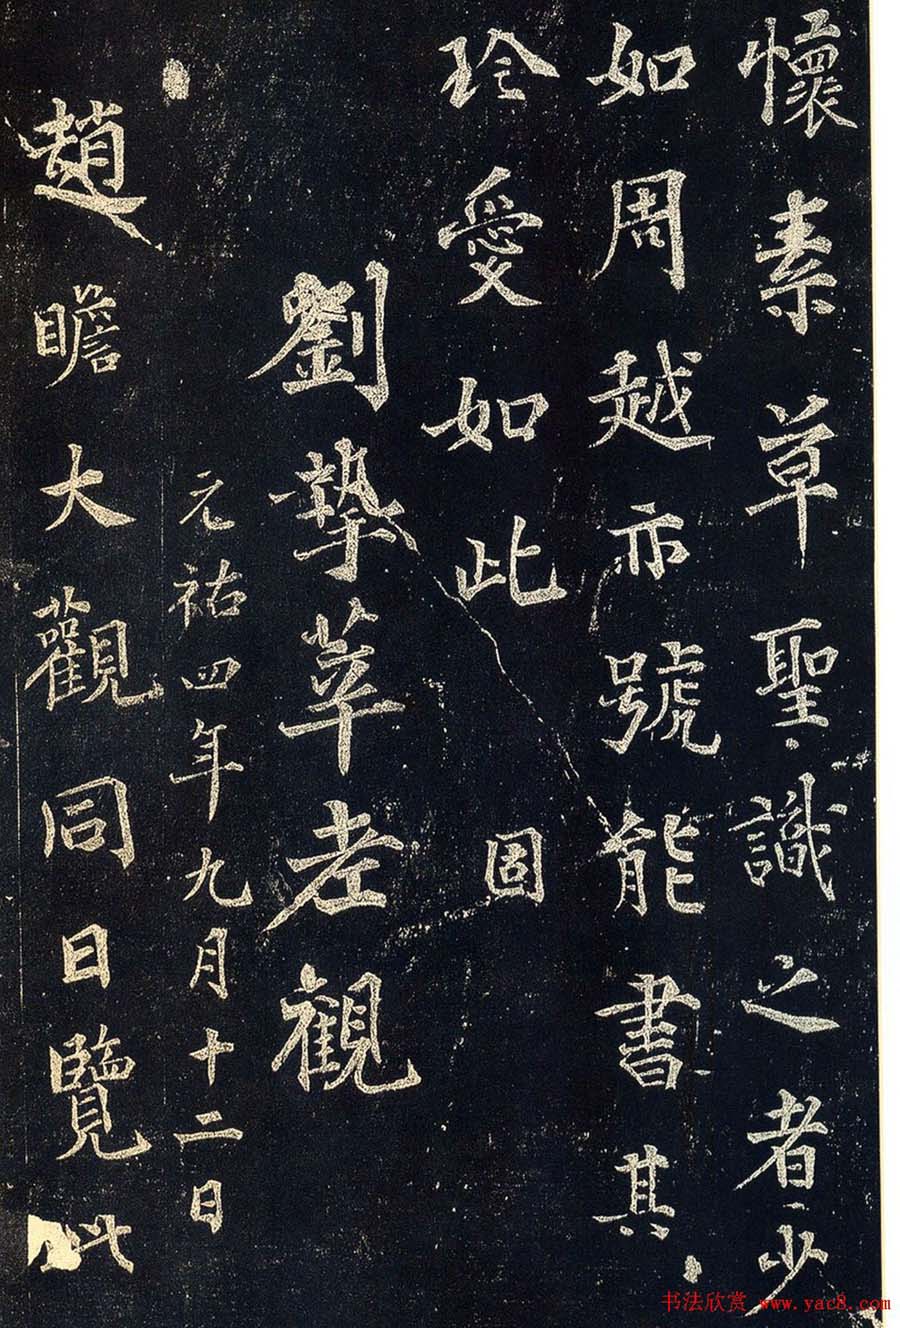 懷素草聖識之者少
如周越亦號能書其
珍愛如此 固
劉摯莘老觀
元祐四年九月十二日
趙瞻大觀同日覽此
书法欣赏 www.yac8.com